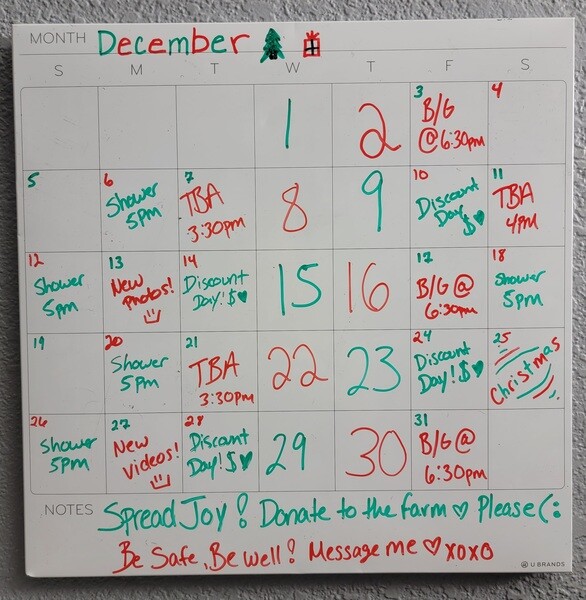 MONTH December
S M T W T F S
1 2 3 B/G @ 6:30pm 4
5 6 Shower 5pm 7 TBA 3:30pm 8 9 10 Discount Day $ 11 TBA 4PM
12 Shower 5pm 13 New photos! 14 Discount Day! $ 15 16 17 B/G @ 6:30pm 18 Shower 5pm
19 20 Shower 5pm 21 TBA 3:30pm 22 23 24 Discount Day! $ 25 Christmas
26 Shower 5pm 27 New Videos! 28 Discount Day! $ 29 30 31 B/G @ 6:30pm
NOTES Spread Joy! Donate to the farm ♡ Please (:
Be Safe, Be well! Message me ♡ xoxo
U BRANDS